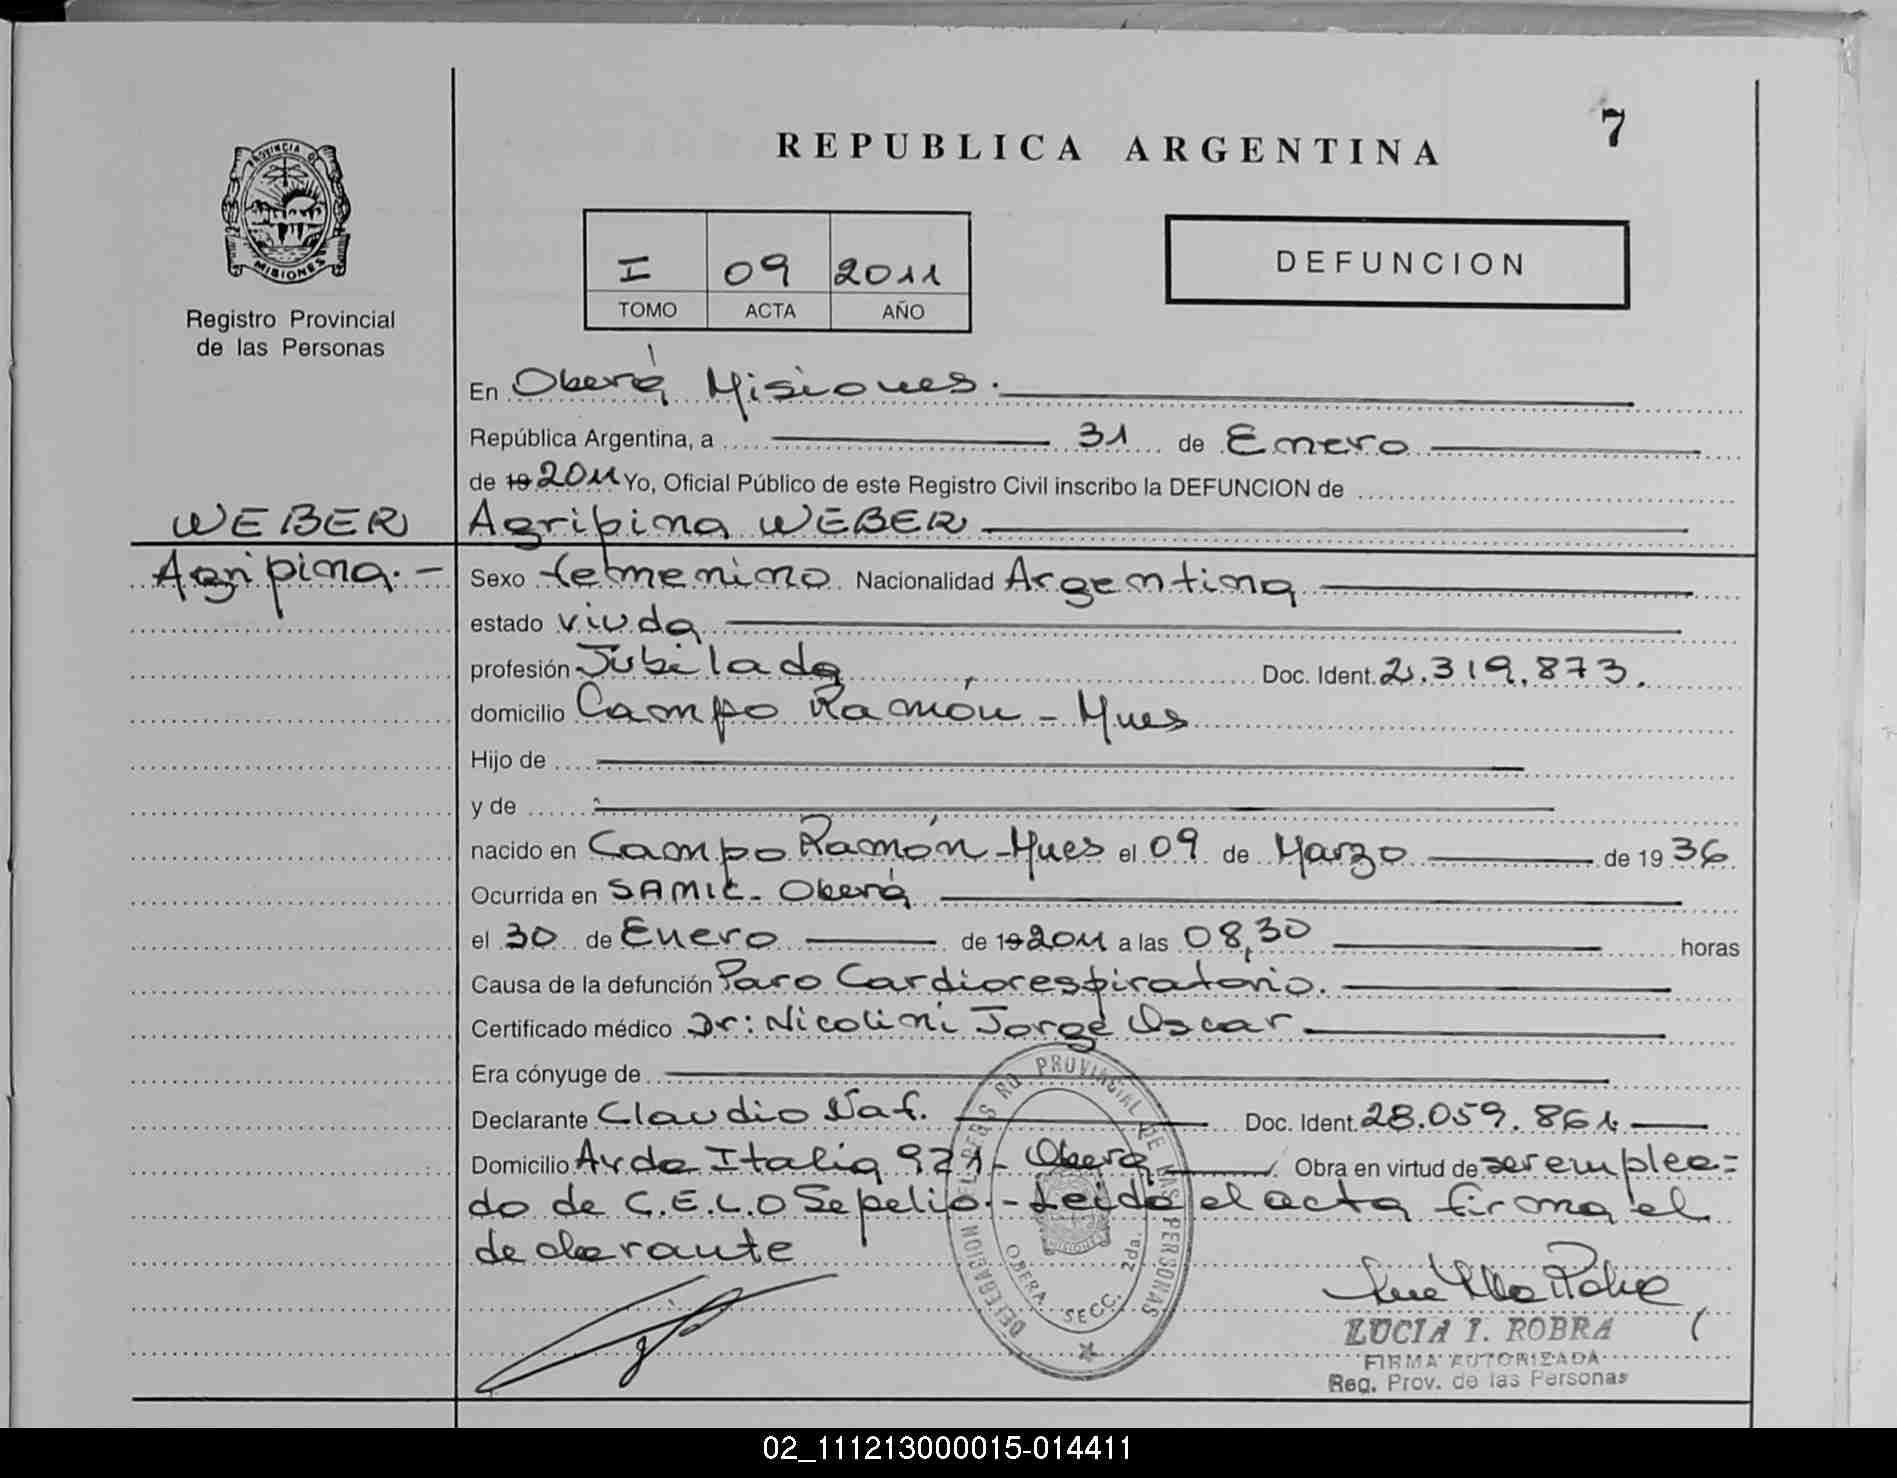 7
REPUBLICA ARGENTINA
PROVINCIA DE
MISIONES
Registro Provincial
de las Personas
I 09 2011
TOMO ACTA AÑO
DEFUNCION
En Oberá Misiones.
República Argentina, a 31 de Enero
de 19 2011 Yo, Oficial Público de este Registro Civil inscribo la DEFUNCION de
WEBER Agripina WEBER
Agripina.- Sexo femenino Nacionalidad Argentina
estado viuda
profesión Jubilada Doc. Ident. 2.319.873.
domicilio Campo Ramón - Mnes
Hijo de
y de
nacido en Campo Ramón - Mnes el 09 de Marzo de 19 36
Ocurrida en SAMIC - Oberá
el 30 de Enero de 19 2011 a las 08,30 horas
Causa de la defunción Paro Cardiorespiratorio.
Certificado médico Dr: Nicolini Jorge Oscar
Era cónyuge de
Declarante Claudio Naf. Doc. Ident. 28.059.861.
Domicilio Avda Italia 921 - Oberá Obra en virtud de ser emplea=
do de C.E.L.O Sepelio.- Leída el acta firma el
declarante
DELEGACION DEL REG RO. PROVINCIAL DE LAS PERSONAS
MISIONES
OBERA SECC. 2da.
LUCIA I. ROBRA
FIRMA AUTORIZADA
Reg. Prov. de las Personas
02_111213000015-014411